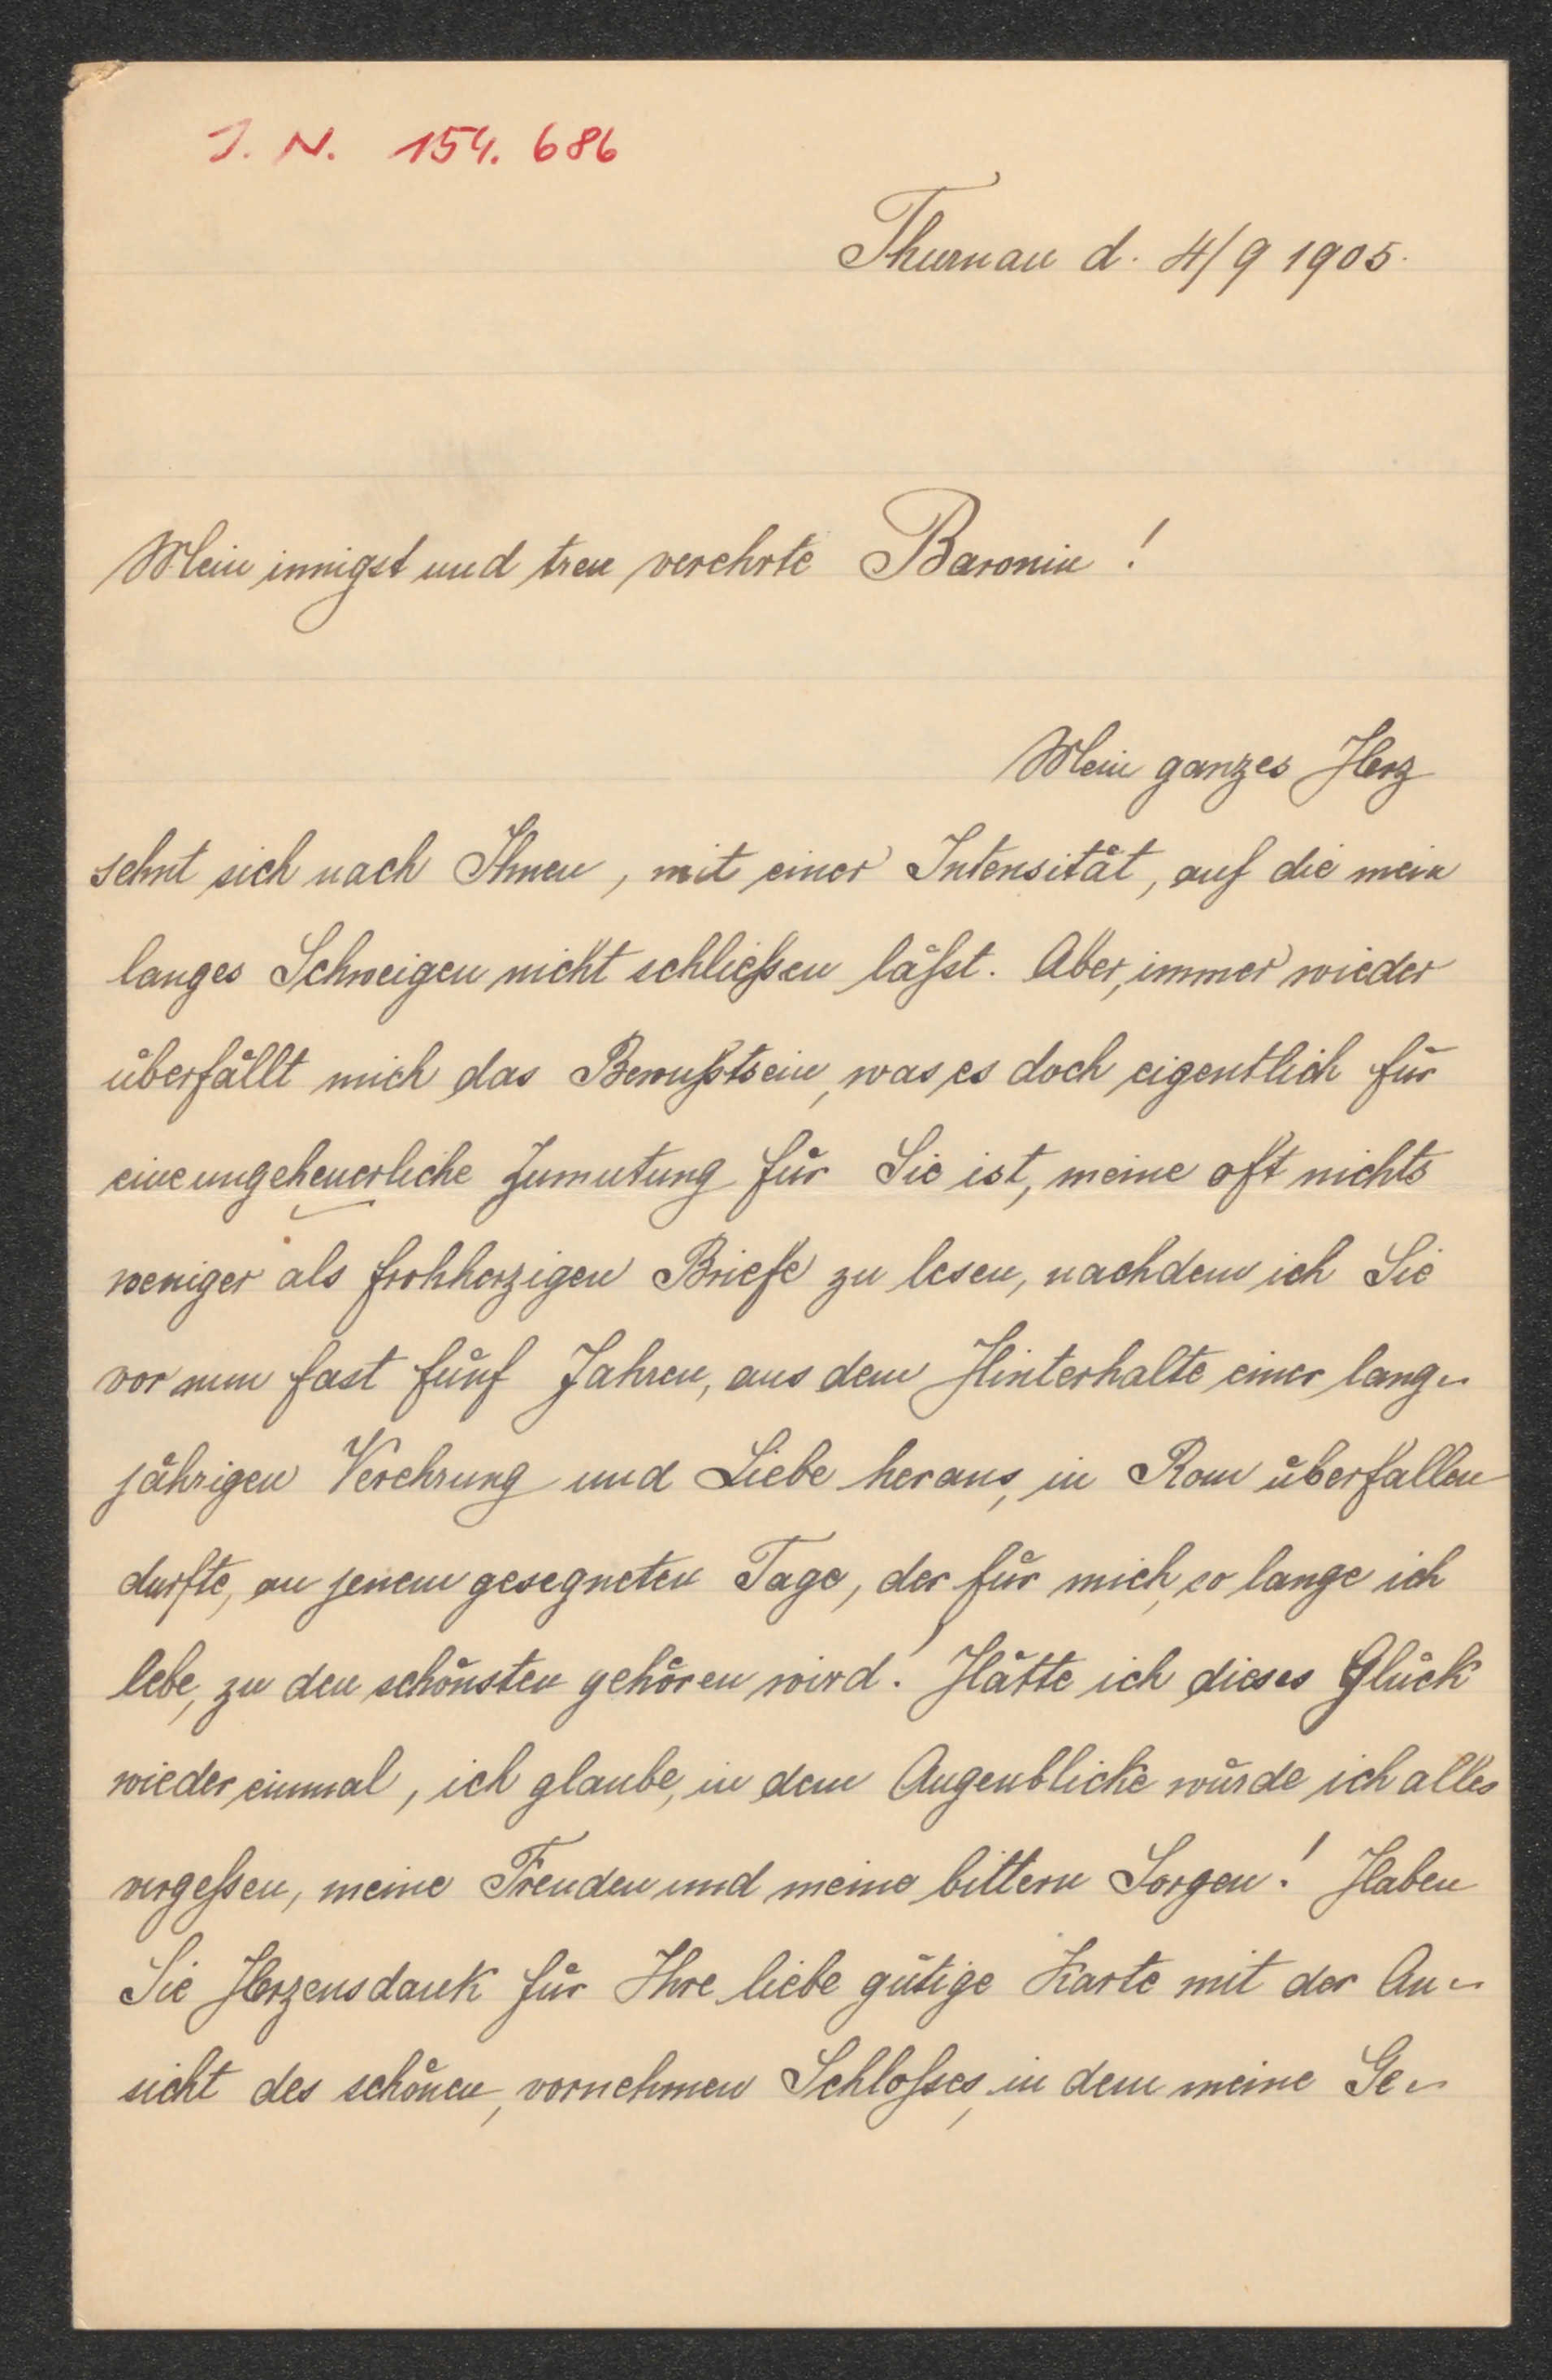 J. N. 154. 686
Thurnau d. 4/9 1905.
Mein innigst und treu verehrte Baronin!
Mein ganzes Herz
sehnt sich nach Ihnen, mit einer Intensität, auf die mein
langes Schweigen nicht schließen läßt. Aber, immer wieder
überfällt mich das Bewußtsein, was es doch eigentlich für
eine ungeheuerliche Zumutung für Sie ist, meine oft nichts
weniger als frohherzigen Briefe zu lesen, nachdem ich Sie
vor nun fast fünf Jahren, aus dem Hinterhalte einer lang-
jährigen Verehrung und Liebe heraus, in Rom überfallen
durfte, an jenem gesegneten Tage, der für mich, so lange ich
lebe, zu den schönsten gehören wird! Hätte ich dieses Glück
wieder einmal, ich glaube, in dem Augenblicke würde ich alles
vergeßen, meine Freuden und meine bittern Sorgen! Haben
Sie Herzensdank für Ihre liebe gütige Karte mit der An-
sicht des schönen, vornehmen Schloßes, in dem meine Ge-